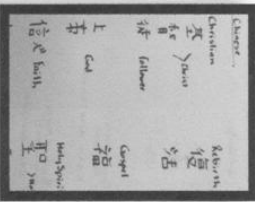 Chinese
Christian
基
督 > Christ
徒 follower
上
帝 God
信 faith
Rebirth
復
活
Gospel
福
Holy Spiri
聖